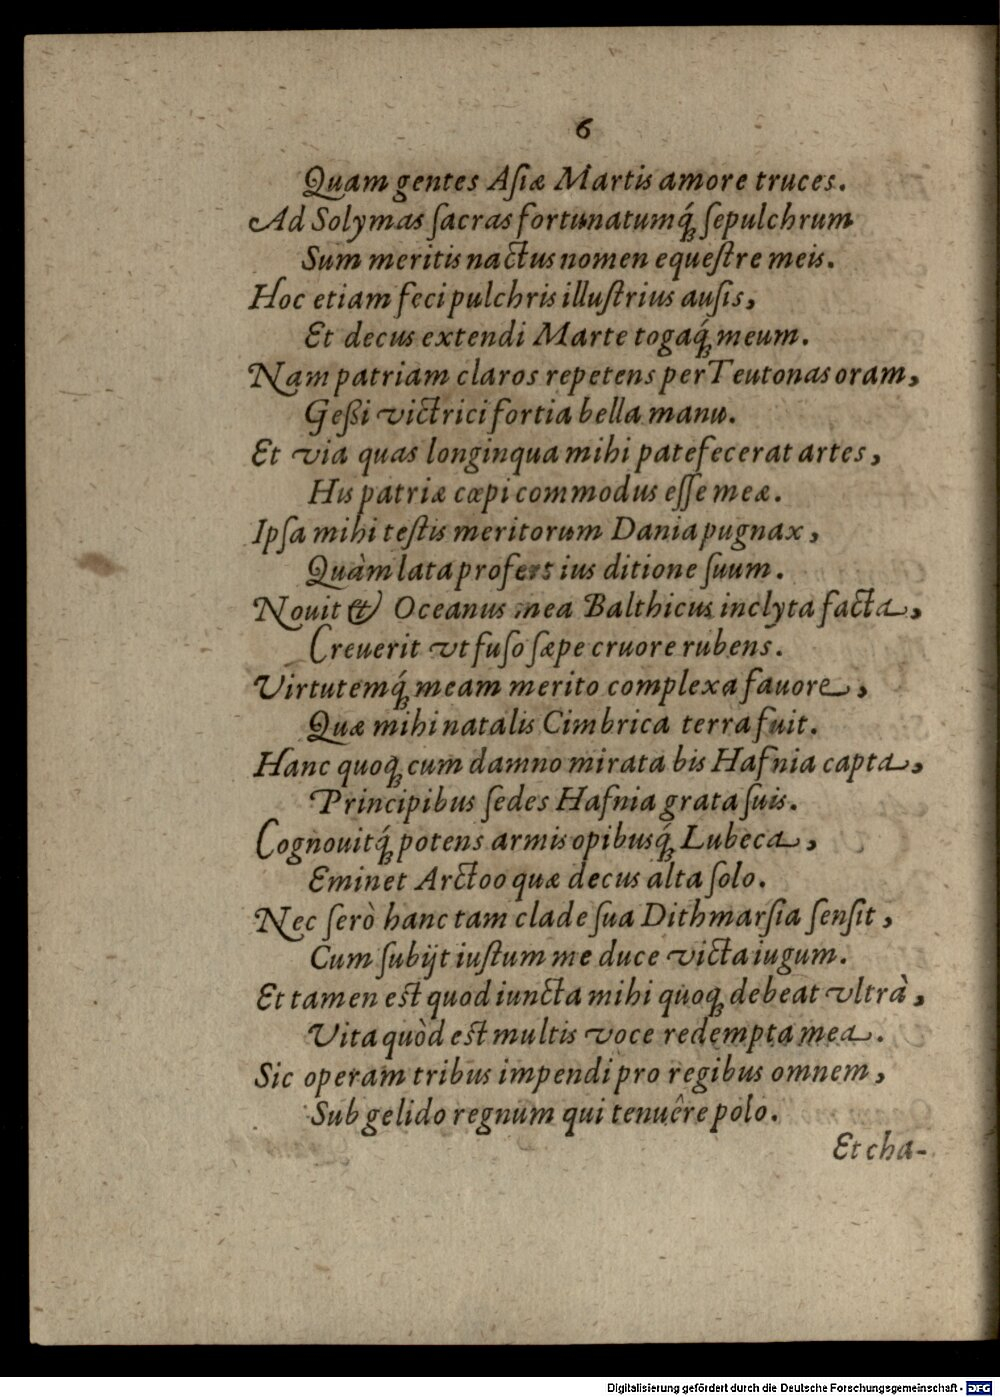 6
Quam gentes Aſiæ Martis amore truces.
Ad Solymas ſacras fortunatumq́ꝫ ſepulchrum
Sum meritis nactus nomen equeſtre meis.
Hoc etiam feci pulchris illuſtrius auſis,
Et decus extendi Marte togaq́ꝫ meum.
Nam patriam claros repetens per Teutonas oram,
Geßi victrici fortia bella manu.
Et via quas longinqua mihi patefecerat artes,
His patriæ cœpi commodus eſſe meæ.
Ipſa mihi teſtis meritorum Dania pugnax,
Quàm lata profert ius ditione ſuum.
Nouit & Oceanus mea Balthicus inclyta facta,
Creuerit vt fuſo ſæpe cruore rubens.
Virtutemq́ꝫ meam merito complexa fauore,
Quæ mihi natalis Cimbrica terra fuit.
Hanc quoqꝫ cum damno mirata bis Hafnia capta,
Principibus ſedes Hafnia grata ſuis.
Cognouitq́ꝫ potens armis opibusq́ꝫ Lubeca,
Eminet Arctoo quæ decus alta ſolo.
Nec ſerò hanc tam clade ſua Dithmarſia ſenſit,
Cum ſubijt iuſtum me duce victa iugum.
Et tamen eſt quod iuncta mihi quoqꝫ debeat vltrà,
Vita quòd eſt multis voce redempta mea.
Sic operam tribus impendi pro regibus omnem,
Sub gelido regnum qui tenuêre polo.
Et cha-
Digitalisierung gefördert durch die Deutsche Forschungsgemeinschaft - DFG